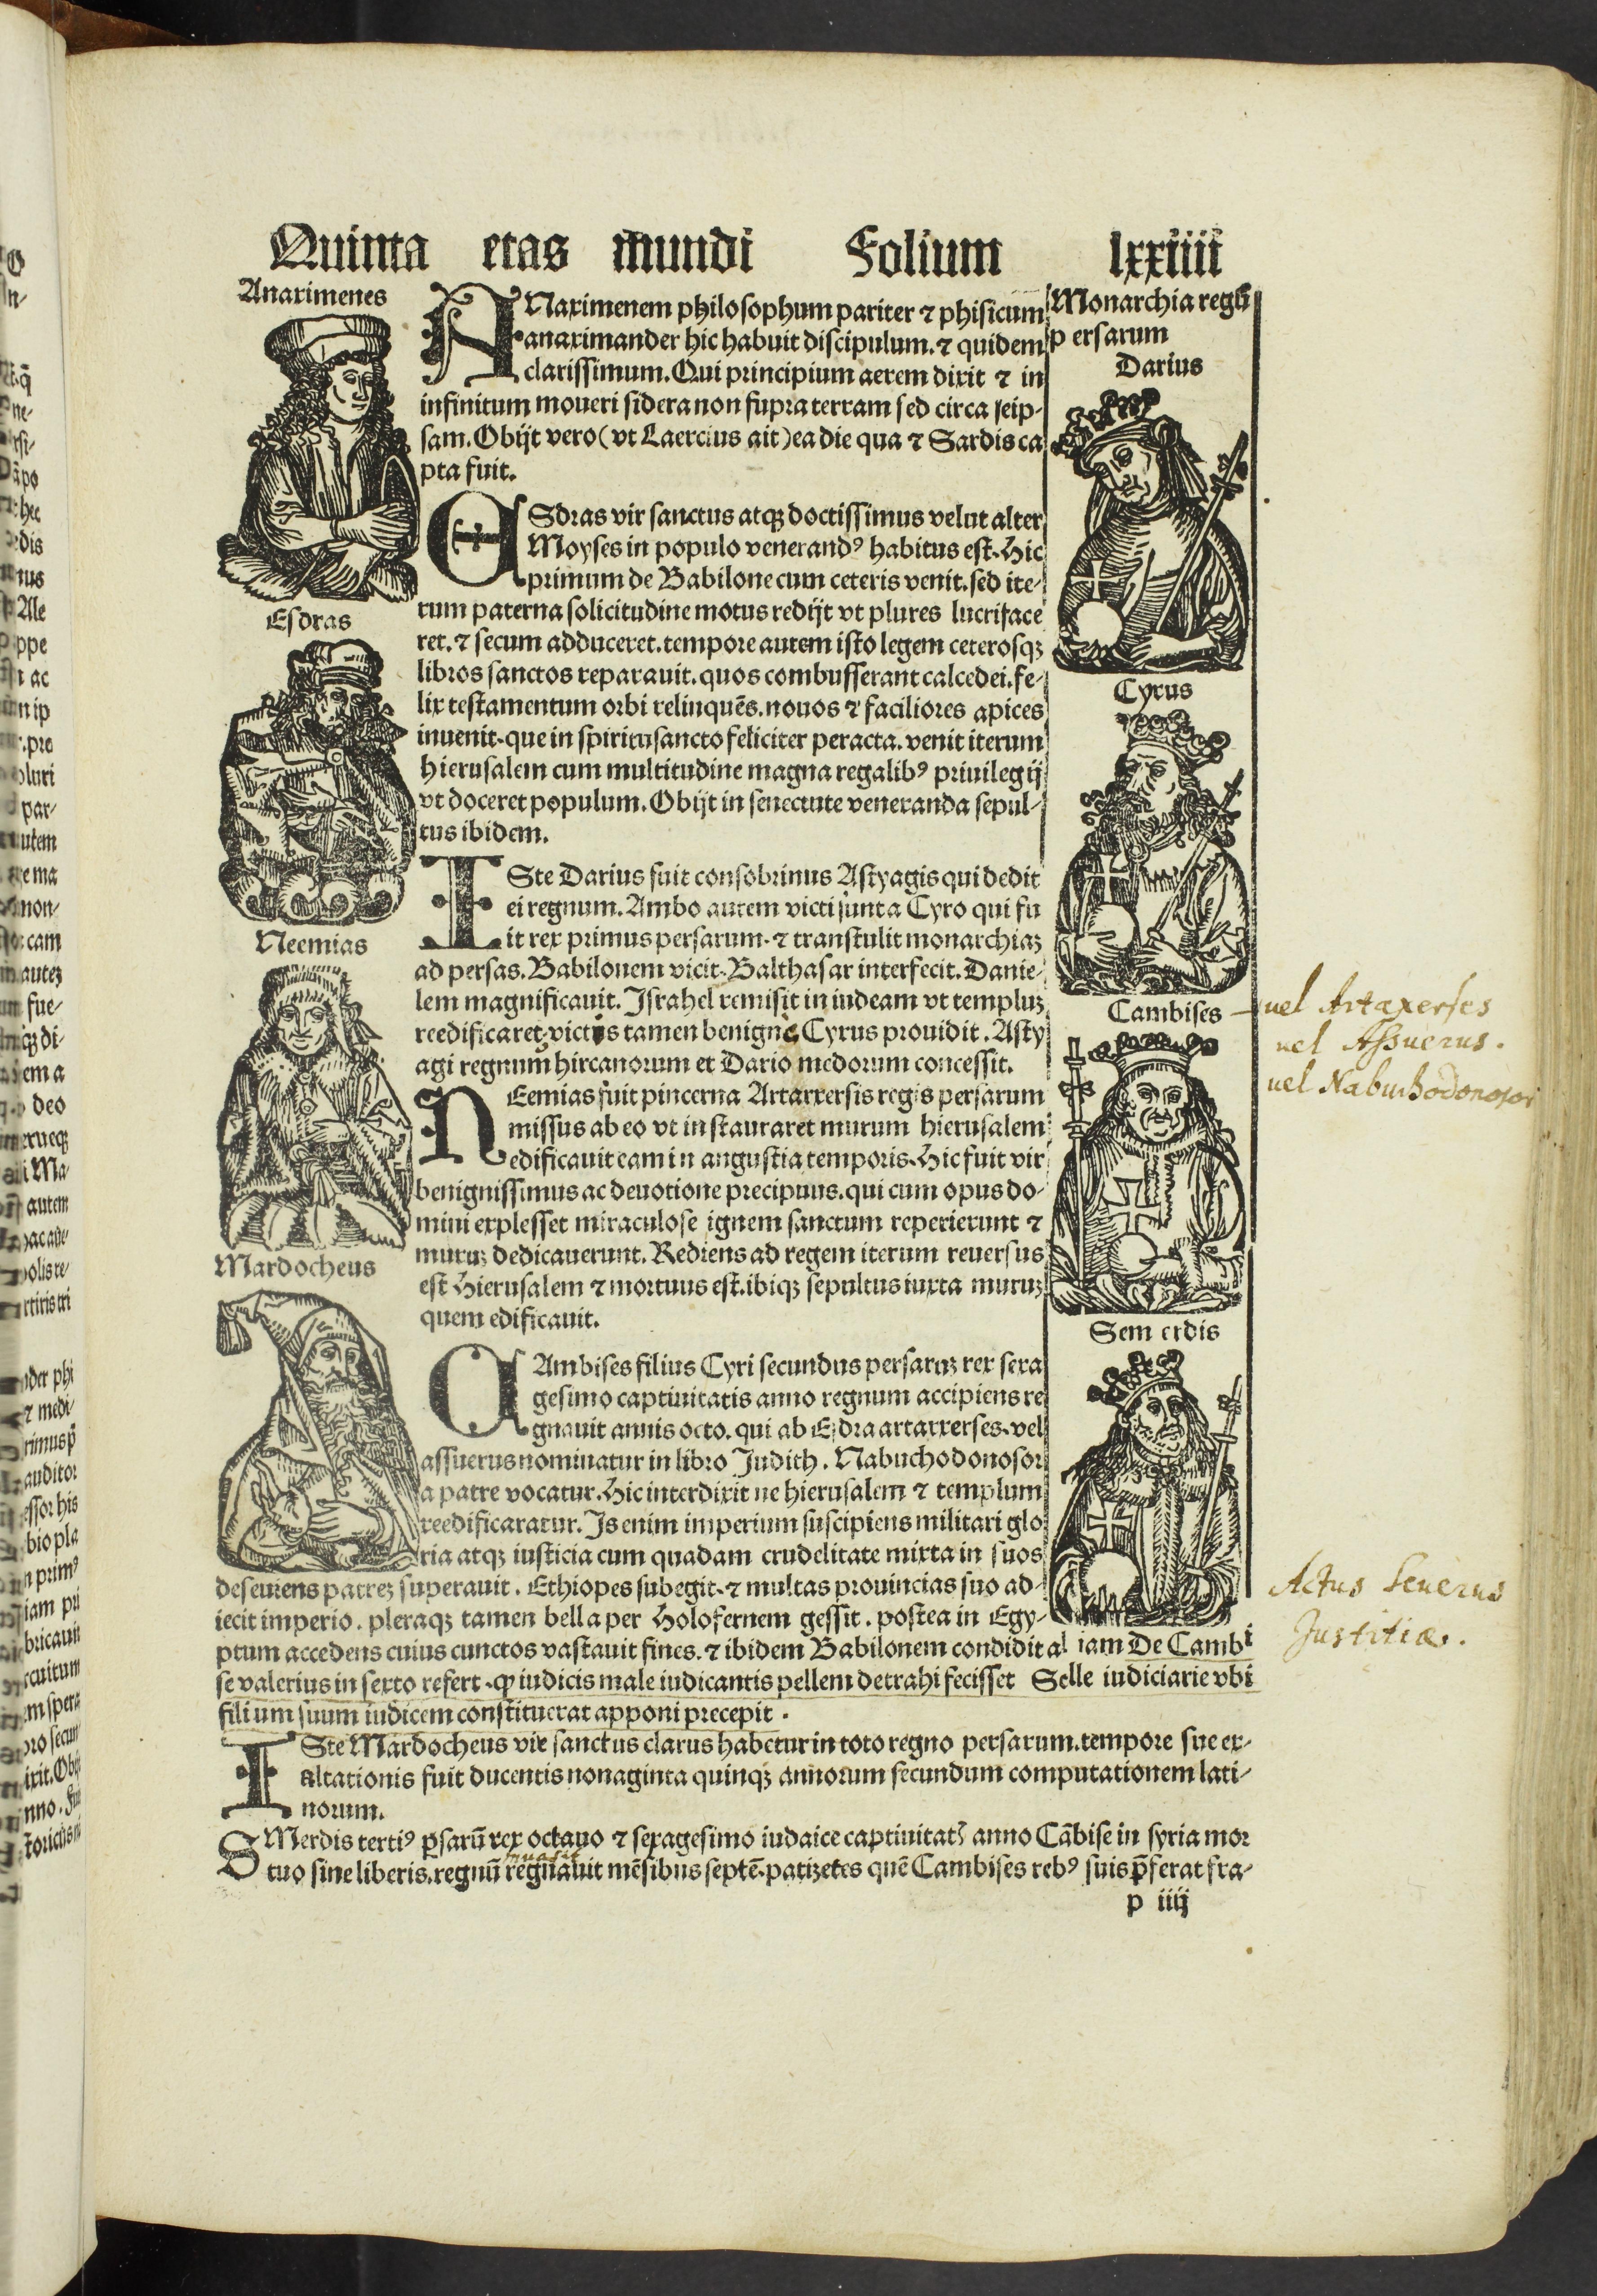 Quinta etas mundi Folium lxxiiii
Anaximenes
NAximenem philosophum pariter ⁊ phisicum
anaximander hic habuit discipulum. ⁊ quidem
clarissimum. Qui principium aerem dixit ⁊ in
infinitum moueri sidera non supra terram sed circa seip-
sam. Obijt vero (vt Laercius ait) ea die qua ⁊ Sardis ca
pta fuit.
Esdras
ESdras vir sanctus atqꝫ doctissimus velut alter
Moyses in populo venerandꝰ habitus est. Hic
primum de Babilone cum ceteris venit. sed ite-
rum paterna solicitudine motus redijt vt plures lucriface
ret. ⁊ secum adduceret. tempore autem isto legem ceterosqꝫ
libros sanctos reparauit. quos combusserant calcedei. fe-
lix testamentum orbi relinquēs. nouos ⁊ faciliores apices
inuenit. que in spiritusancto feliciter peracta. venit iterum
hierusalem cum multitudine magna regalibꝰ priuilegij
vt doceret populum. Obijt in senectute veneranda sepul-
tus ibidem.
ISte Darius fuit consobrinus Astyagis qui dedit
ei regnum. Ambo autem victi sunt a Cyro qui fu
it rex primus persarum. ⁊ transtulit monarchiaꝫ
ad persas. Babilonem vicit. Balthasar interfecit. Danie-
lem magnificauit. Israhel remisit in iudeam vt templuꝫ
reedificaret. victis tamen benigne Cyrus prouidit. Asty
agi regnum hircanorum et Dario medorum concessit.
Neemias
NEemias fuit pincerna Artarxersis regis persarum
missus ab eo vt instauraret murum hierusalem
edificauit eam in angustia temporis. Hic fuit vir
benignissimus ac deuotione precipuus. qui cum opus do-
mini explesset miraculose ignem sanctum reperierunt ⁊
muruꝫ dedicauerunt. Rediens ad regem iterum reuersus
est Hierusalem ⁊ mortuus est. ibiqꝫ sepultus iuxta muruꝫ
quem edificauit.
Mardocheus
CAmbises filius Cyri secundus persaruꝫ rex sexa
gesimo captiuitatis anno regnum accipiens re
gnauit annis octo. qui ab Esdra artarxerses. vel
assuerus nominatur in libro Judith. Nabuchodonosor
a patre vocatur. Hic interdixit ne hierusalem ⁊ templum
reedificaratur. Is enim imperium suscipiens militari glo
ria atqꝫ iusticia cum quadam crudelitate mixta in suos
deseuiens patreꝫ superauit. Ethiopes subegit. ⁊ multas prouincias suo ad-
iecit imperio. pleraqꝫ tamen bella per Holofernem gessit. postea in Egy-
ptum accedens cuius cunctos vastauit fines. ⁊ ibidem Babilonem condidit al iam De Cambi
se valerius in sexto refert. ꝙ iudicis male iudicantis pellem detrahi fecisset Selle iudiciarie vbi
filium suum iudicem constituerat apponi precepit.
ISte Mardocheus vir sanctus clarus habetur in toto regno persarum. tempore sue ex-
altationis fuit ducentis nonaginta quinqꝫ annorum secundum computationem lati-
norum.
SMerdis tertiꝰ ꝑsarū rex octauo ⁊ sexagesimo iudaice captiuitatꝭ anno Cābise in syria mor
inuasit
tuo sine liberis. regnū regnauit mēsibus septē. patizetes quē Cambises rebꝰ suis p̄ferat fra-
p iiij
Monarchia regū
p ersarum
Darius
Cyrus
Cambises
uel Artaxerses
uel Assuerus.
uel Nabuchodonosor
Sem erdis
Actus Seuerus
Justitiæ.